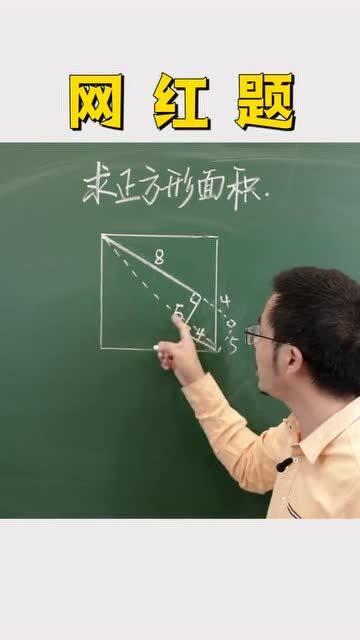 网红题
求正方形面积.
8
4
5
4
5